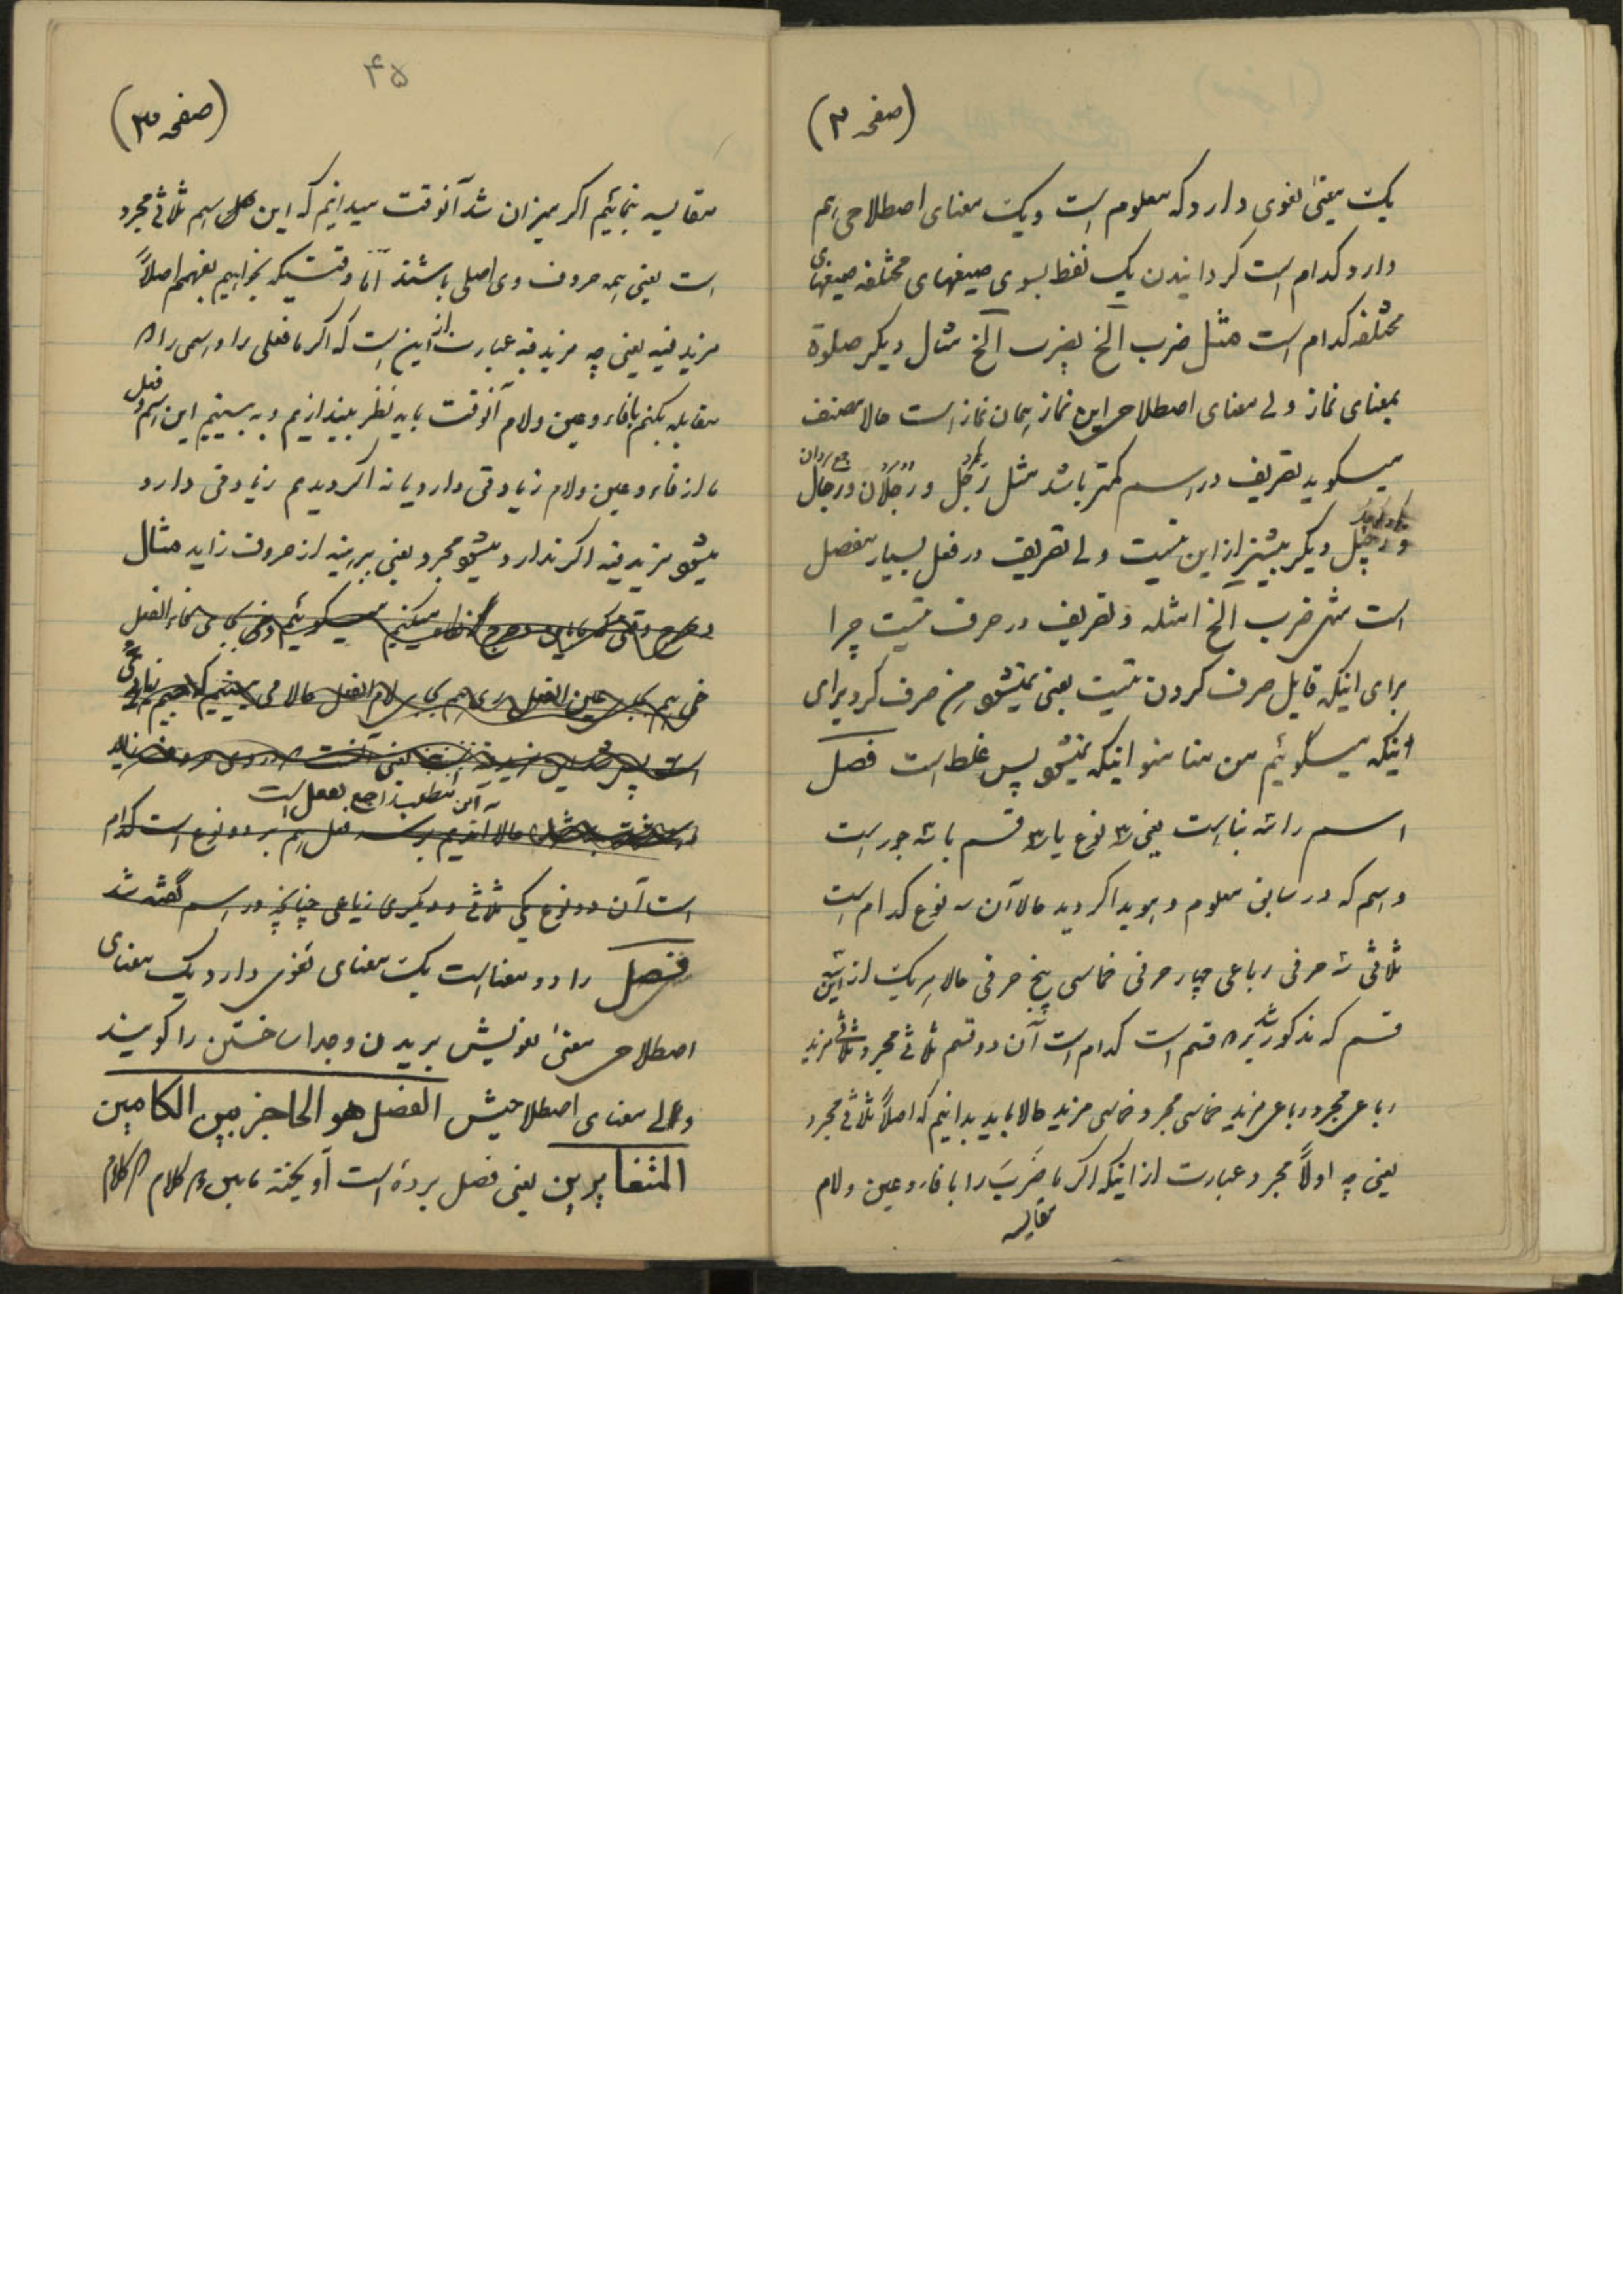 (صفحه ۲)
یک معنیٰ لغوی دارد که معلوم است و یک معنای اصطلاحی هم
دارد کدام است گردانیدن یک لفظ بسوی صیغهای مختلفه صیغهای
مختلفه کدام است مثل ضرب الخ یضرب الخ مثال دیگر صلوة
بمعنای نماز ولی معنای اصطلاحی این نماز همان نماز است حالا مصنف
میگوید تصریف در اسم کمتر باشد مثل رَجُل و رَجُلان و رجال
و رجیل دیگر بیشتر از این نیست ولی تصریف در فعل بسیار مفصل
است مثل ضرب الخ امثله و تصریف در حرف نیست چرا
برای اینکه قابل صرف کردن نیست یعنی نمیشود مِن صرف کرد برای
اینکه میگوئیم من منا منو اینکه نمیشود پس غلط است فصل
اسم را سه بنا است یعنی ۳ نوع یا ۳ قسم یا سه جور است
و اسم که در سابق معلوم و هویدا گردید حالا آن سه نوع کدام است
ثلاثی سه حرفی رباعی چهار حرفی خماسی پنج حرفی حالا هر یک از این
قسم که مذکور شد بر ۲ قسم است کدام است آن دو قسم ثلاثی مجرد و ثلاثی مزید
رباعی مجرد رباعی مزید خماسی مجرد خماسی مزید حالا باید بدانیم که اصلاً ثلاثی مجرد
یعنی چه اولاً مجرد عبارت از اینکه اگر ما ضَرَبَ را با فاء و عین و لام
مقایسه
۴۵
(صفحه ۳)
مقایسه نمائیم اگر میزان شد آنوقت میدانیم که این اسم ثلاثی مجرد
است یعنی همه حروف وی اصلی باشند امّا وقتیکه بخواهیم بفهمیم اصلاً
مزید فیه یعنی چه مزید فیه عبارت از این است که اگر ما فعلی را و اسمی را
مقابله بکنیم با فاء و عین و لام آنوقت باید نظر بیندازیم و به بینیم این اسم و فعل
ما از فاء و عین و لام زیادتی دارد یا نه اگر دیدیم زیادتی دارد
میشود مزید فیه اگر ندارد میشود مجرد یعنی برهنه از حروف زاید مثال
این مطلب راجع بفعل است
حالا آمدیم بر سر فعل هم بر دو نوع است کدام
است آن دو نوع یکی ثلاثی و دیگری رباعی چنانچه در اسم گفته شد
فصل را دو معنا است یک معنای لغوی دارد یک معنای
اصطلاحی معنیٰ لغویش بریدن و جدا ساختن را گویند
ولی معنای اصطلاحیش الفصل هو الحاجز بین الکلامین
المتغایرین یعنی فصل پردهٔ است آویخته مابین دو کلام